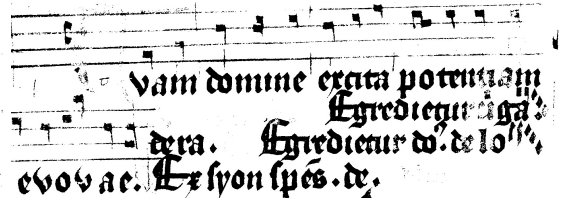 vam domine excita potentiam
Egredietur virga
dera. Egredietur dō. de lo
evovae. Ex syon spēs. de.